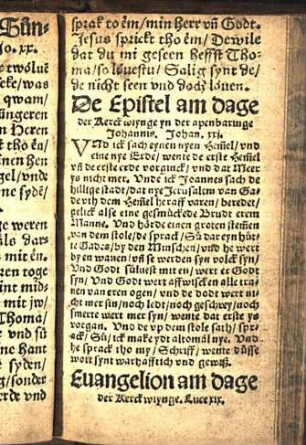 Sün-
Jo. xx.
twölue
kt, was
s qwam/
üngeren
n Heren
kt tho ein/
sinen hen
gel/vnde
ne syde/
ge weren
üls dar-
s mit en.
zen toge
int mid-
mit jw/
Thoma/
vnd sü
ine hant
syden/
g/sonder
ede vnd
sprak to em/ min Herr vn Godt.
Jesus sprickt tho em/ Dewile
dat du mi geseen heffst Tho
ma/ so löuestu/ Salig synt de/
de nicht seen vnd doch löuen.
De Epistel am dage
der Kerckwiynge yn der apenbaringe
Johannis. Johan. xxi.
VNd ick sach eynen nyen Hemel/ vnd
eine nye Erde/ wente de erste Hemel
vn de erste erde vorginck/ vnd dat Meer
ys nicht mer. Vnde ick Joannes sach de
hillige stadt/ dat nye Jerusalem van Ga-
de vth dem Hemel heraff varen/ beredet/
gelick alse eine gesmückede Brudt erem
Manne. Vnd hörde einen groten stemen
van dem stole/ de sprack/ Sü dar eyn hüt
te Gades/ by den Minschen/ vnd he wert
by en wanen/ vn se werden syn volck syn/
Vnd Godt süluest mit en/ wert er Godt
syn/ Vnd Godt wert affwiscken alle tra
nen van eren ogen/ vnd de dodt wert nicht
mer sin/ noch ledt/ noch geschrey/ noch
smerte wert mer syn/ wente dat erste ys
vorgan. Vnd de vp dem stole sath/ sprack/
Sü/ ick make ydt altomal nye. Vnd
he sprack tho my/ Schriff/ wente düsse
wort synt warhafftich vnd gewiß.
Euangelion am dage
der Kerckwiynge. Luce xix.